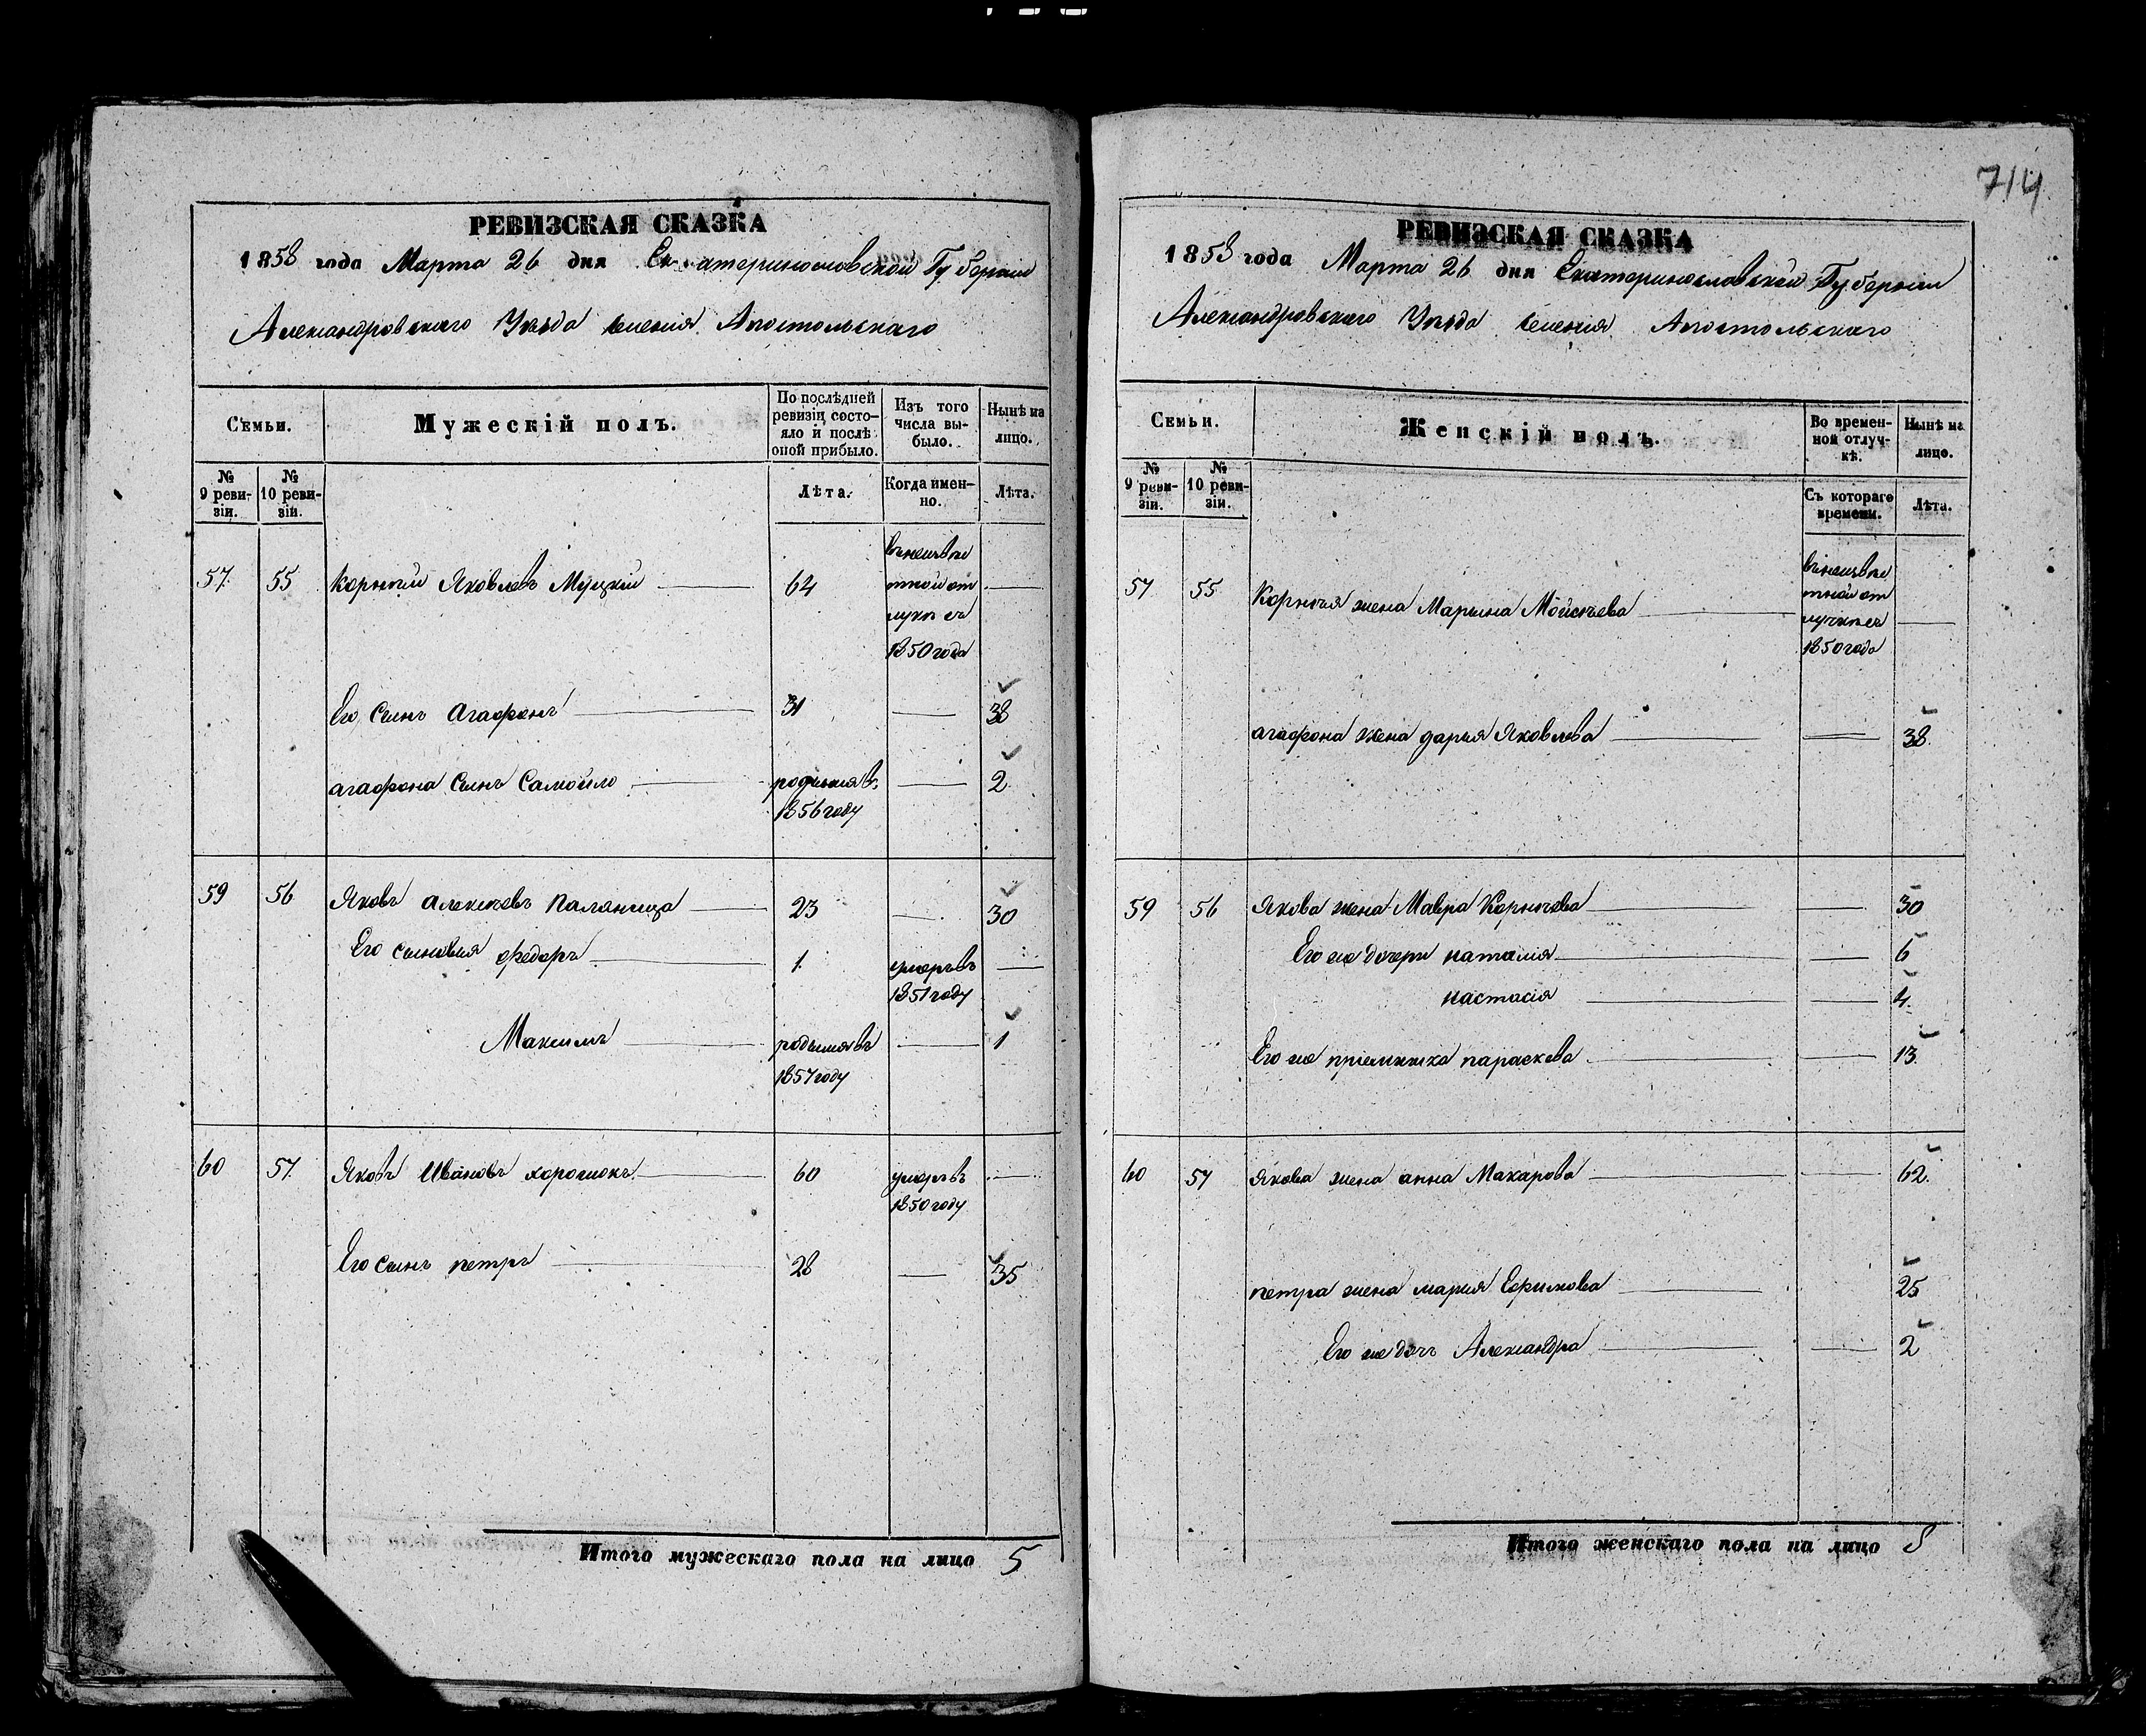 714
РЕВИЗСКАЯ СКАЗКА
1858 года Марта 26 дня Екатеринославской Губернии
Александровскаго Уѣзда селенія Апостольскаго
Семьи.
Мужескій полъ.
По послѣдней ревизіи состояло и послѣ оной прибыло.
Изъ того числа выбыло.
Нынѣ на лицо.
№ 9 ревизіи.
№ 10 ревизіи.
Лѣта.
Когда именно.
Лѣта.
57 55 Корнѣй Яковлевъ Муцкій 64 въ неизвѣстной отлучкѣ съ 1850 года
Его сынъ Агафонъ 31 38
агафона сынъ Самойло родился въ 1856 году 2
59 56 Яковъ Алексѣевъ Паляница 23 30
Его сыновья Федоръ 1 умеръ въ 1851 году
Максимъ родился въ 1857 году 1
60 57 Яковъ Ивановъ хорошокъ 60 умеръ въ 1850 году
Его сынъ петръ 28 35
Итого мужескаго пола на лицо 5
РЕВИЗСКАЯ СКАЗКА
1858 года Марта 26 дня Екатеринославской Губернии
Александровскаго Уѣзда селенія Апостольскаго
Семьи.
Женскій полъ.
Во временной отлучкѣ.
Нынѣ на лицо.
№ 9 ревизіи.
№ 10 ревизіи.
Съ котораго времени.
Лѣта.
57 55 Корнѣя жена Марьина Мойсѣева въ неизвѣстной отлучкѣ съ 1850 года
агафона жена дарья Яковлева 38
59 56 Якова жена Мавра Корнѣева 30
Его же дочери наталія 6
настасія 4
Его же приемышка параскева 13
60 57 Якова жена анна Макарова 62
петра жена мария Ефимова 25
Его же дочь Александра 2
Итого женскаго пола на лицо 8